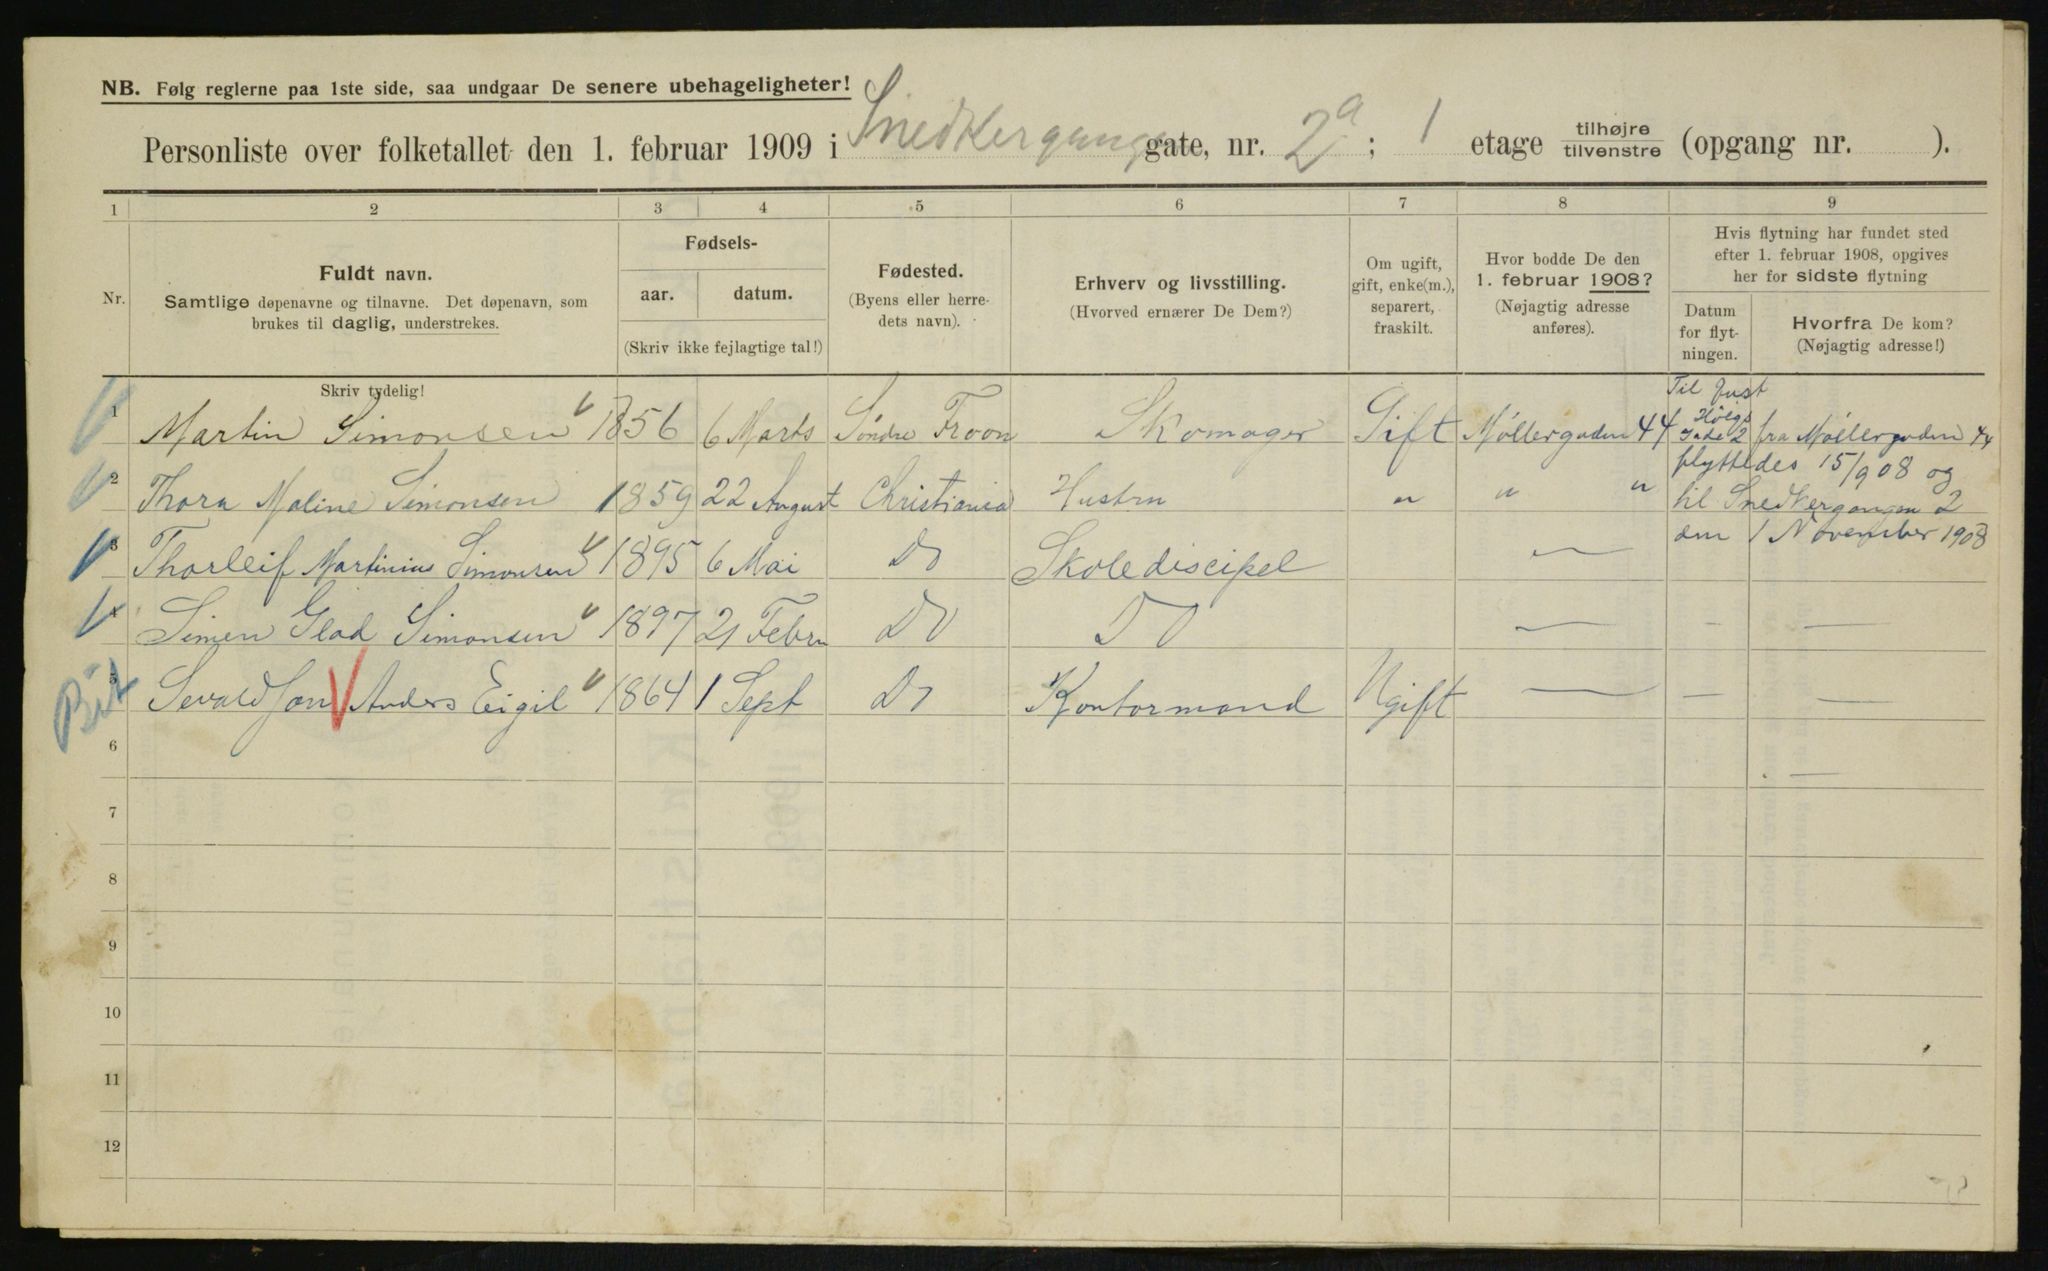 NB. Følg reglerne paa 1ste side, saa undgaar De senere ubehageligheter!
Personliste over folketallet den 1. februar 1909 i Snedkergangen gate, nr. 2a ; 1 etage tilhøjre tilvenstre (opgang nr. ).
1 2 3 4 5 6 7 8 9
Nr.
Fuldt navn.
Samtlige døpenavne og tilnavne. Det døpenavn, som
brukes til daglig, understrekes.
Fødsels-
aar. datum.
(Skriv ikke fejlagtige tal!)
Fødested.
(Byens eller herre-
dets navn).
Erhverv og livsstilling.
(Hvorved ernærer De Dem?)
Om ugift,
gift, enke(m.),
separert,
fraskilt.
Hvor bodde De den
1. februar 1908?
(Nøjagtig adresse
anføres).
Hvis flytning har fundet sted
efter 1. februar 1908, opgives
her for sidste flytning
Datum
for flyt-
ningen.
Hvorfra De kom?
(Nøjagtig adresse!)
Skriv tydelig!
1 Martin Simonsen 1856 6 Marts Søndre Froon Skomager Gift Møllergaden 44
2 Thora Maline Simonsen 1859 22 August Christiania Hustru " " "
3 Thorleif Martinius Simonsen 1895 6 Mai Do Skolediscipel —
4 Simen Glad Simonsen 1897 21 Febru Do Do — — —
5 Sevaldsen Anders Eigil 1864 1 Sept Do Kontormand Ugift — — —
Til
gade 2 fra Møllergaden 44
flyttedes 15/9 08 og
til Snedkergangen 2
den 1 November 1908
6
—
7
8
9
10
11
12